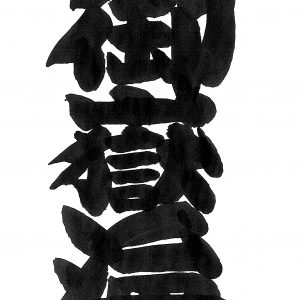 御嶽海